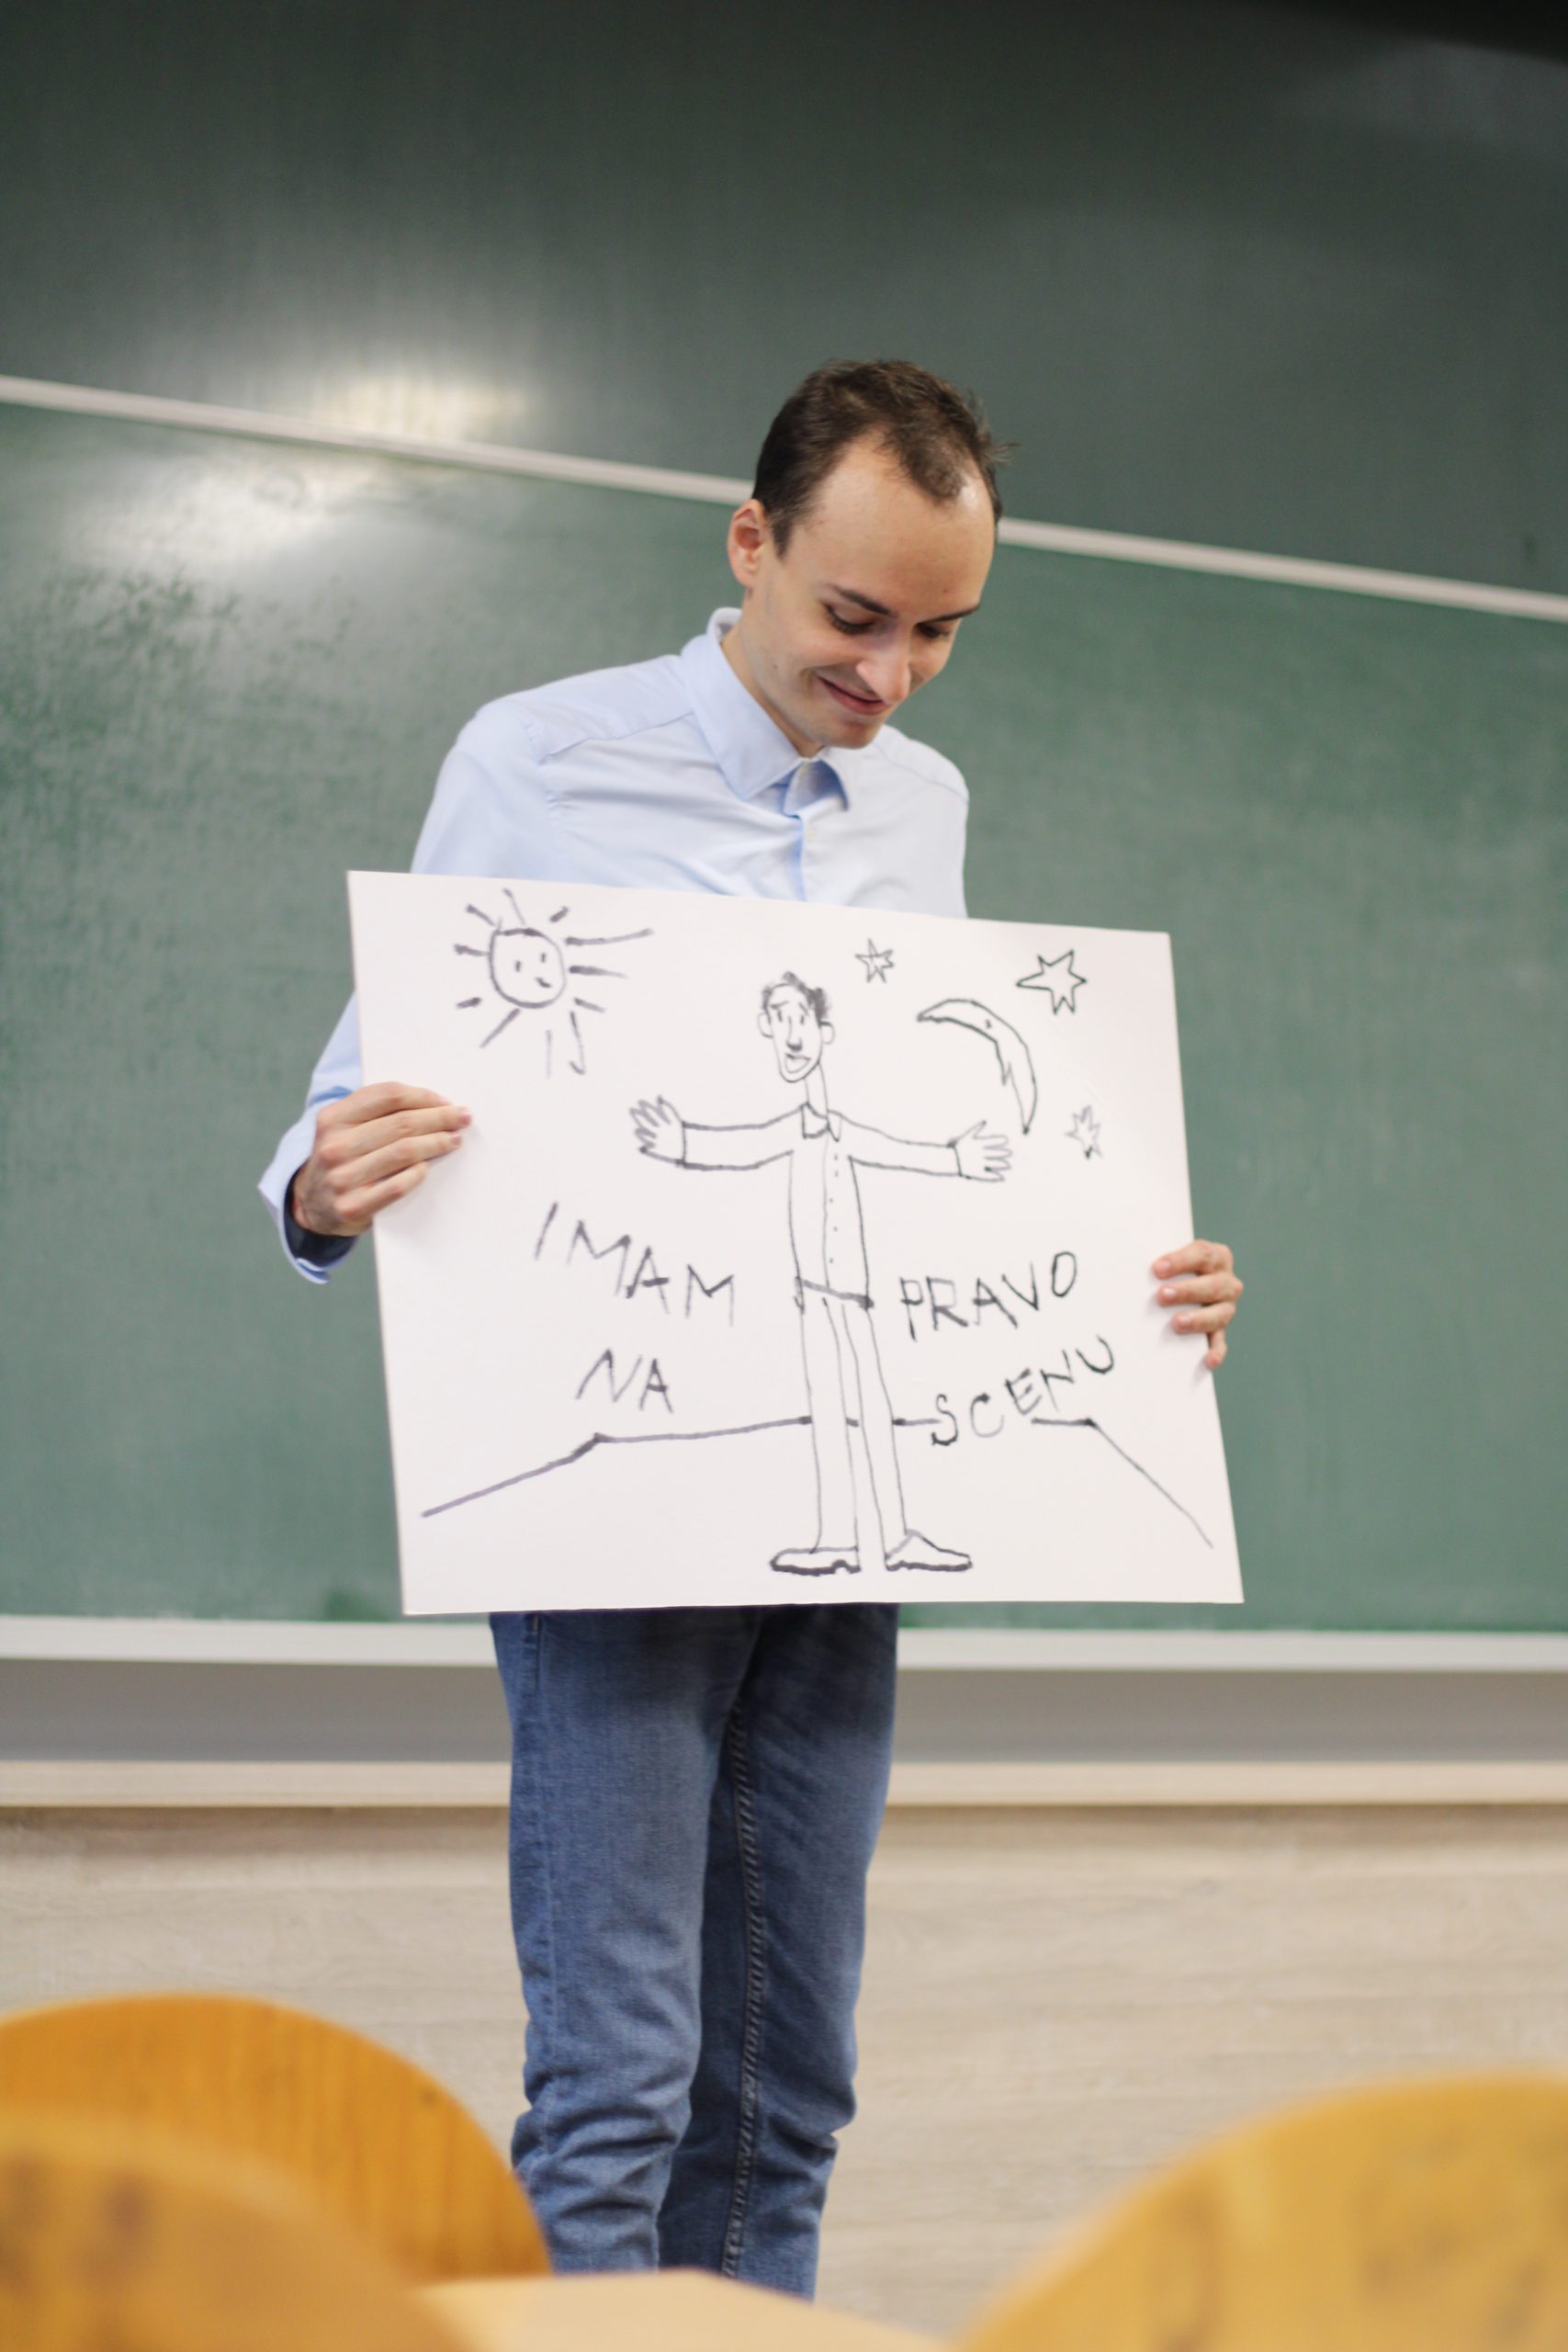 IMAM PRAVO
NA SCENU